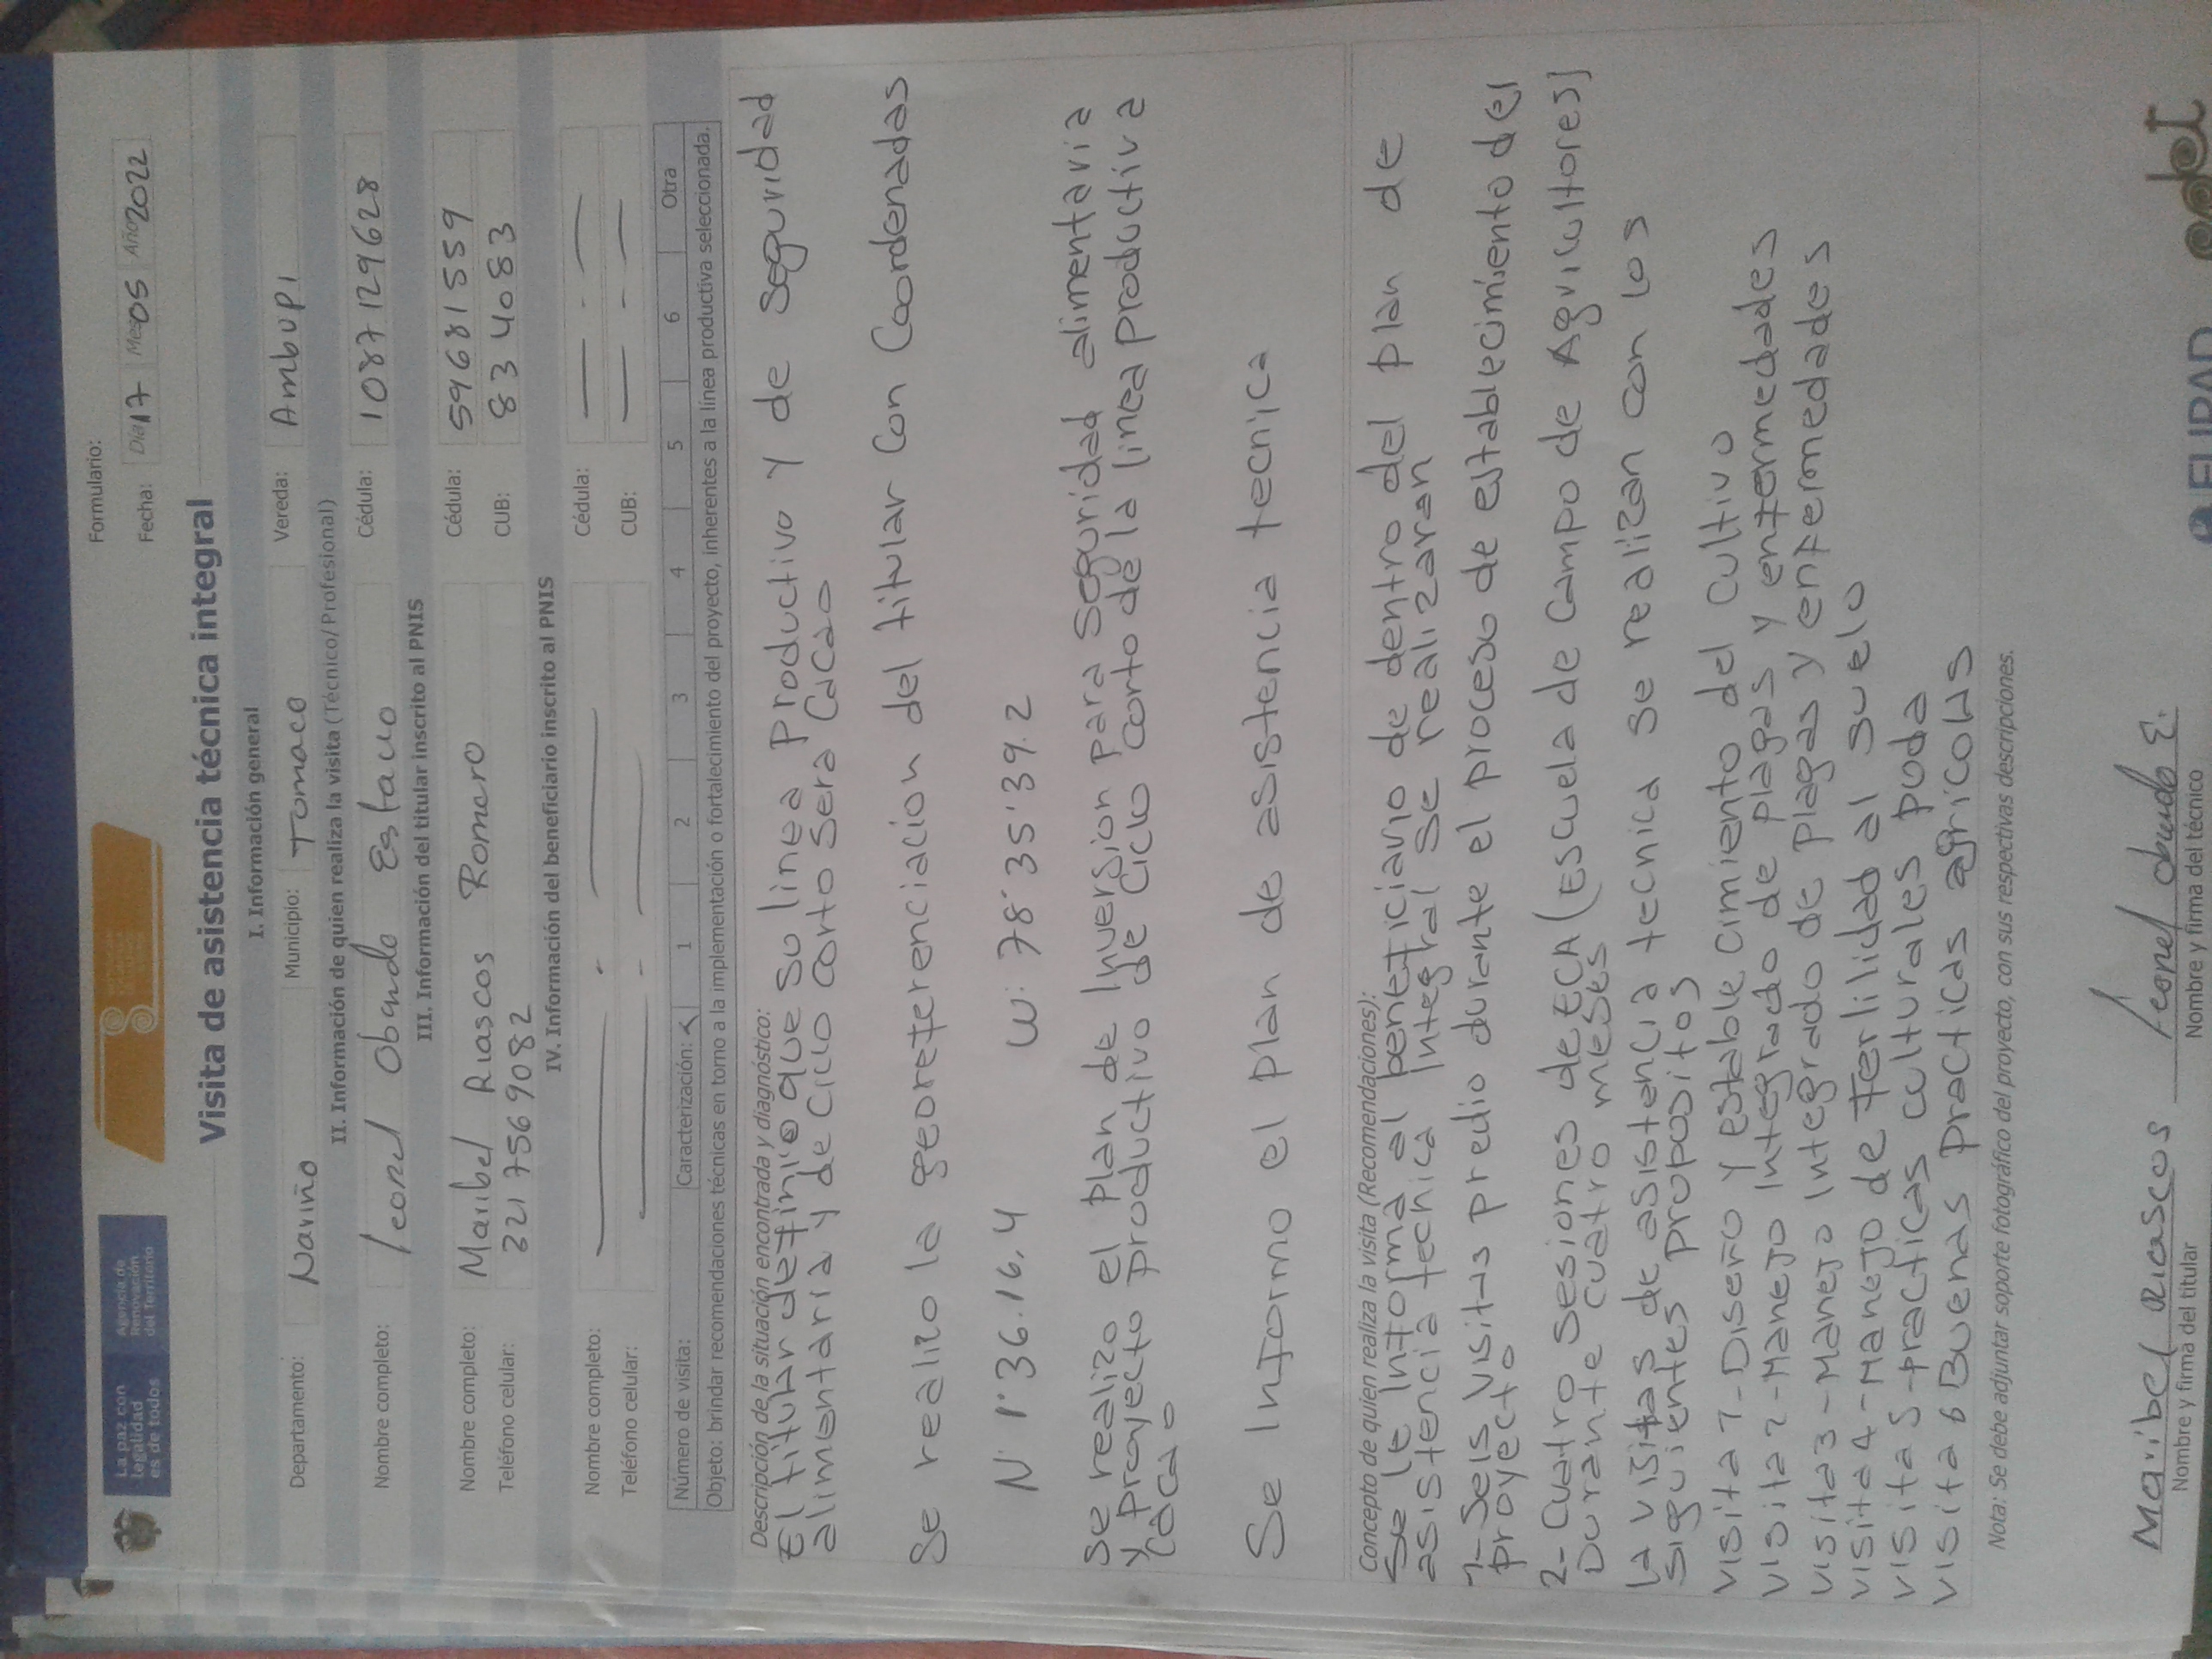 La paz con
legalidad
es de todos
Agencia de
Renovación
del Territorio
Formulario:
Fecha: Día 17 Mes 05 Año 2022
Visita de asistencia técnica integral
I. Información general
Departamento: Nariño Municipio: Tumaco Vereda: Ambupi
II. Información de quien realiza la visita (Técnico/Profesional)
Nombre completo: leonel Obando Estacio Cédula: 1087129628
III. Información del titular inscrito al PNIS
Nombre completo: Maribel Riascos Romero Cédula: 59681559
Teléfono celular: 3217569082 CUB: 834083
IV. Información del beneficiario inscrito al PNIS
Nombre completo: Cédula:
Teléfono celular: CUB:
Número de visita: Caracterización: x 1 2 3 4 5 6 Otra
Objeto: brindar recomendaciones técnicas en torno a la implementación o fortalecimiento del proyecto, inherentes a la línea productiva seleccionada.
Descripción de la situación encontrada y diagnóstico:
El titular definio que su linea Productivo y de seguridad
alimentaria y de Ciclo corto sera Cacao
Se realizo la georeferenciacion del titular Con Coordenadas
N: 1°36.16,4 W: 78°35'39.2
Se realizo el plan de Inversion para seguridad alimentaria
y proyecto productivo de ciclo corto de la linea productiva
Cacao
Se Informo el plan de asistencia tecnica
Concepto de quien realiza la visita (Recomendaciones):
Se le Informa al beneficiario de dentro del plan de
asistencia technica Integral se realizaran
1-Seis visitas predio durante el proceso de establecimiento del
proyecto
2-Cuatro Sesiones de ECA (Escuela de Campo de Agricultores)
Durante cuatro meses
la visitas de asistencia tecnica se realizan con los
siguientes propositos
visita 1-Diseño y establecimiento del cultivo
visita 2-Manejo Integrado de plagas y enfermedades
visita 3-Manejo Integrado de plagas y enfermedades
visita 4-Manejo de fertilidad al suelo
visita 5-practicas culturales poda
visita 6 Buenas practicas agricolas
Nota: Se debe adjuntar soporte fotográfico del proyecto, con sus respectivas descripciones.
Maribel riascos leonel obando E.
Nombre y firma del titular Nombre y firma del técnico